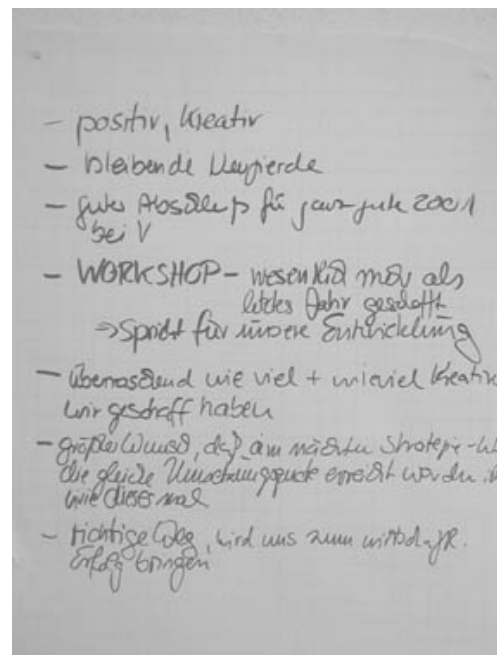 - positiv, kreativ
- bleibende Neugierde
- guter Abschluß für ganz gute 2001
bei V
- WORKSHOP - wesentlich mehr als
letztes Jahr geschafft
⇒ Spricht für unsere Entwicklung
- überraschend wie viel + wieviel Kreativ
wir geschafft haben
- größter Wunsch, daß am nächsten Strategie-
die gleiche Umsetzungsquote erreicht worden
wie dieses mal
- richtige Weg, wird uns zum
Erfolg bringen